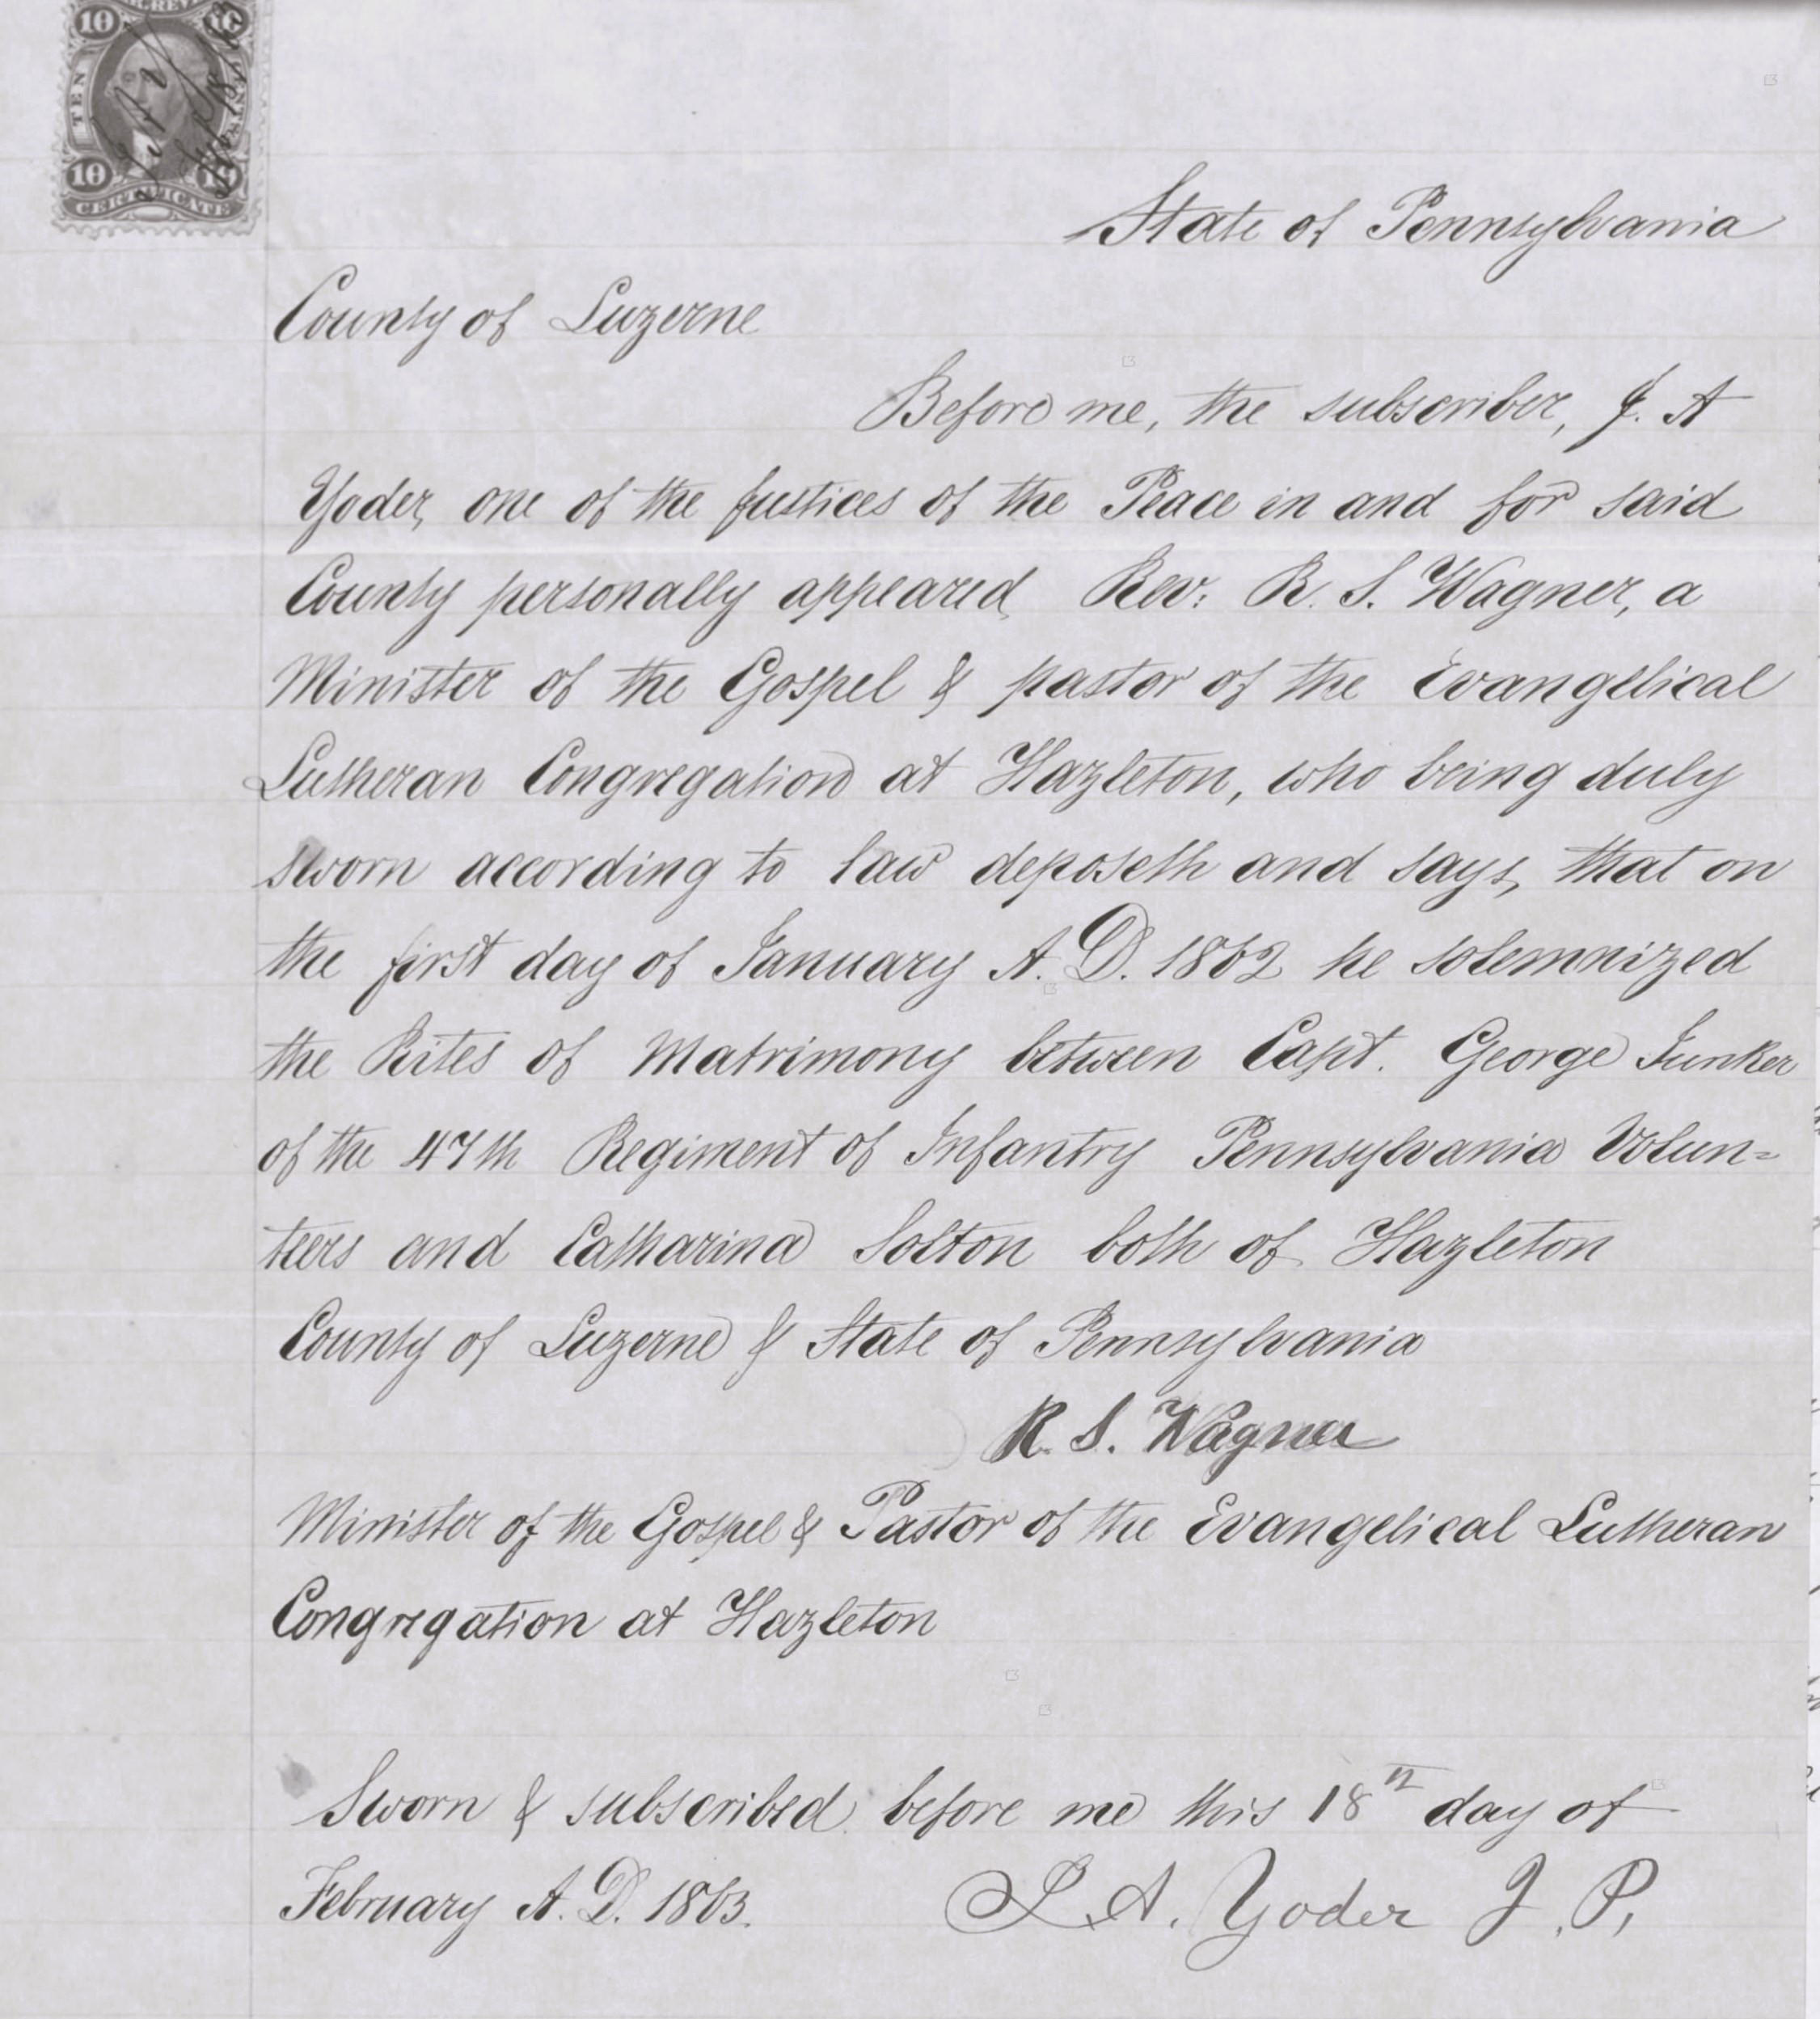 10 10
TEN
10 10
CERTIFICATE
State of Pennsylvania
County of Luzerne
Before me, the subscriber, J. A
Yoder, one of the Justices of the Peace in and for said
County personally appeared, Rev: R. S. Wagner, a
Minister of the Gospel & pastor of the Evangelical
Lutheran Congregation at Hazleton, who being duly
sworn according to law deposeth and says, that on
the first day of January A. D. 1862 he solemnized
the Rites of Matrimony between Capt. George Junker
of the 47th Regiment of Infantry Pennsylvania Volun=
teers and Catharina Solton both of Hazleton
County of Luzerne & State of Pennsylvania
R. S. Wagner
Minister of the Gospel & Pastor of the Evangelical Lutheran
Congregation at Hazleton
Sworn & subscribed before me this 18th day of
February A. D. 1863. A. Yoder J. P.